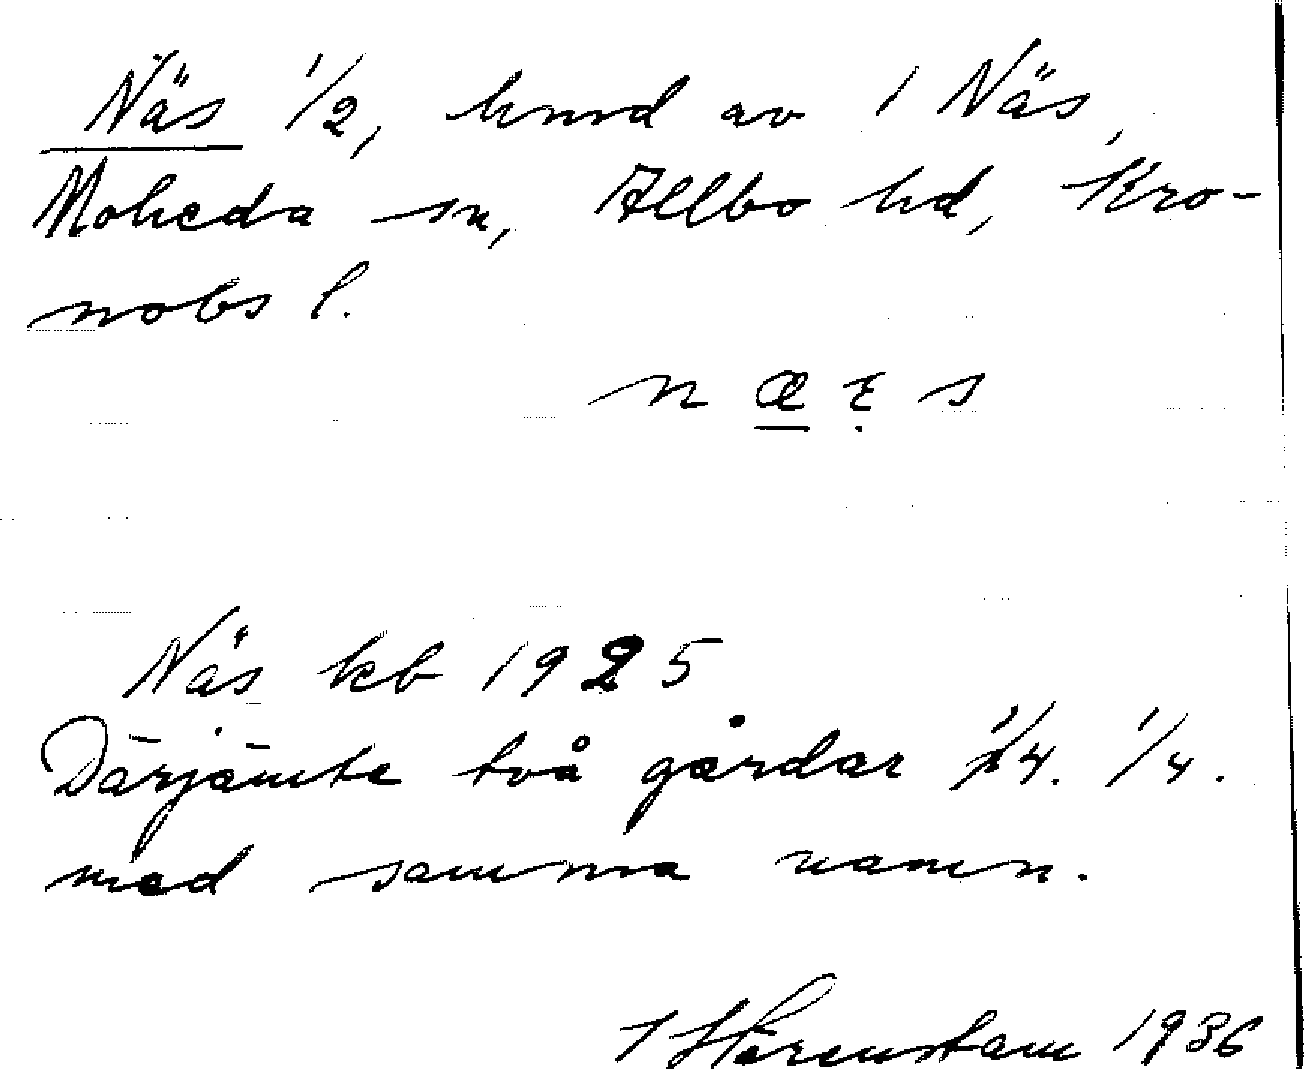 Näs 1/2, hmd av 1 Näs,
Moheda sn, Allbo hd, Kro-
nobs l.
n æ ξ s
Näs kb 1925
Därjämte två gårdar 1/4. 1/4.
med samma namn.
1936